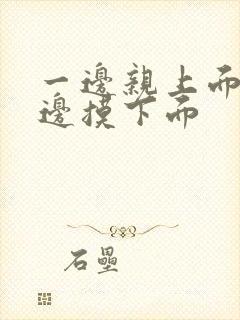 一邊親上面
邊摸下面
石壘